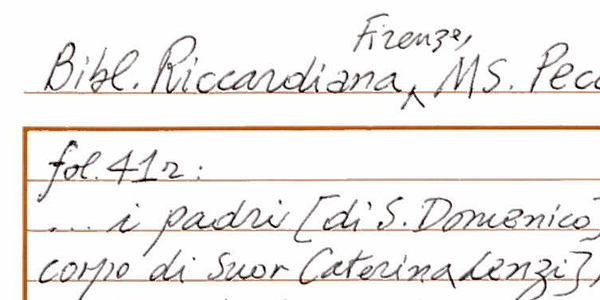 Firenze,
Bibl. Riccardiana, MS. Pecc
fol. 41r:
... i padri [di S. Domenico]
corpo di Suor Caterina Lenzi],